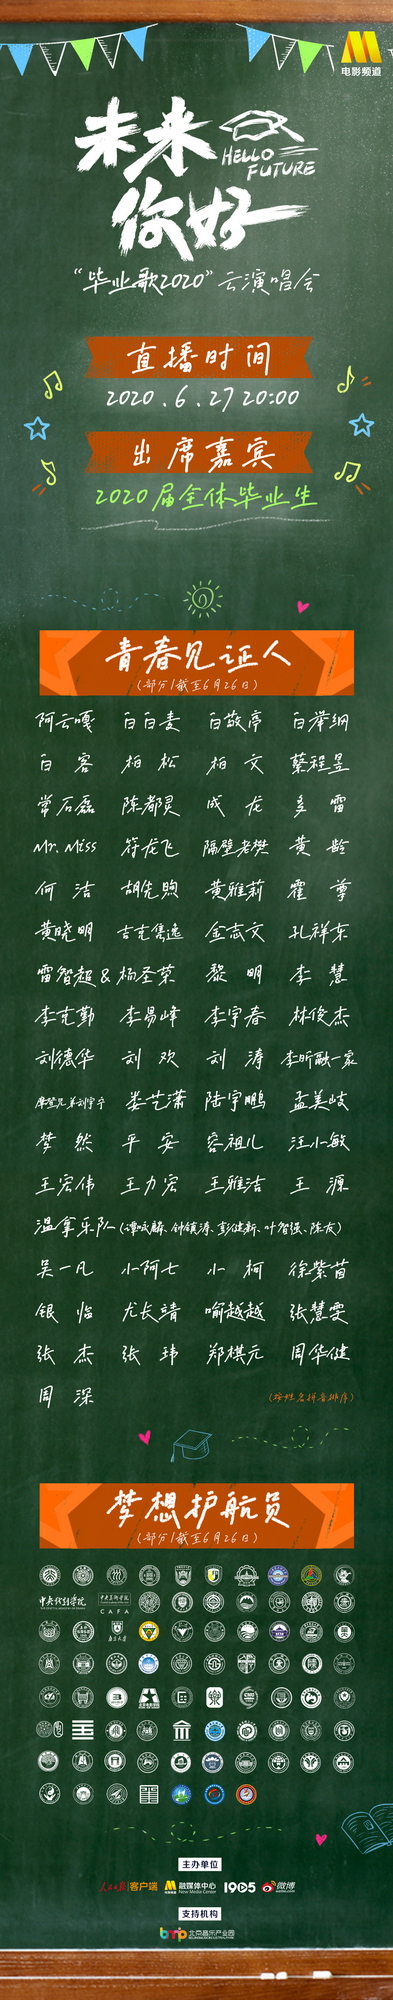 电影频道
未来
HELLO
FUTURE
你好
“毕业歌2020”云演唱会
直播时间
2020.6.27 20:00
出席嘉宾
2020届全体毕业生
青春见证人
(部分/截至6月26日)
阿云嘎 白白麦 白敬亭 白举纲
白客 柏松 柏文 蔡程昱
常石磊 陈都灵 成龙 多雷
Mr. Miss 符龙飞 隔壁老樊 黄龄
何洁 胡先煦 黄雅莉 霍尊
黄晓明 吉克隽逸 金志文 孔祥东
雷智超&杨圣荣 黎明 李慧
李克勤 李易峰 李宇春 林俊杰
刘德华 刘欢 刘涛 李昕融一家
摩登兄弟刘宇宁 娄艺潇 陆宇鹏 孟美岐
梦然 平安 容祖儿 汪小敏
王宏伟 王力宏 王雅洁 王源
温拿乐队(谭咏麟、钟镇涛、彭健新、叶智强、陈友)
吴一凡 小阿七 小柯 徐紫茵
银临 尤长靖 喻越越 张慧雯
张杰 张玮 郑棋元 周华健
周深
(按姓名拼音排序)
梦想护航员
(部分/截至6月26日)
中央戏剧学院 中央美术学院
CAFA
主办单位
人民日报 客户端 融媒体中心 New Media Center 1905 微博
支持机构
北京音乐产业园